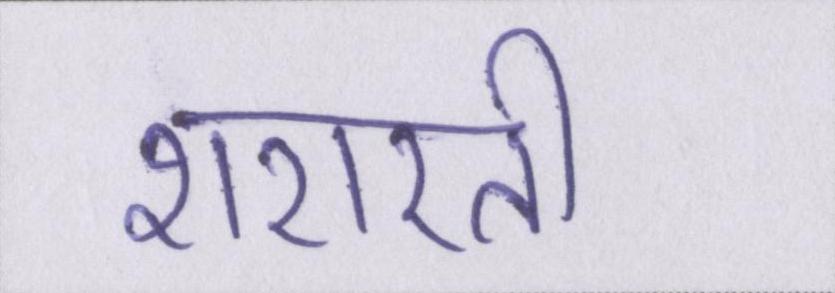 शरारती